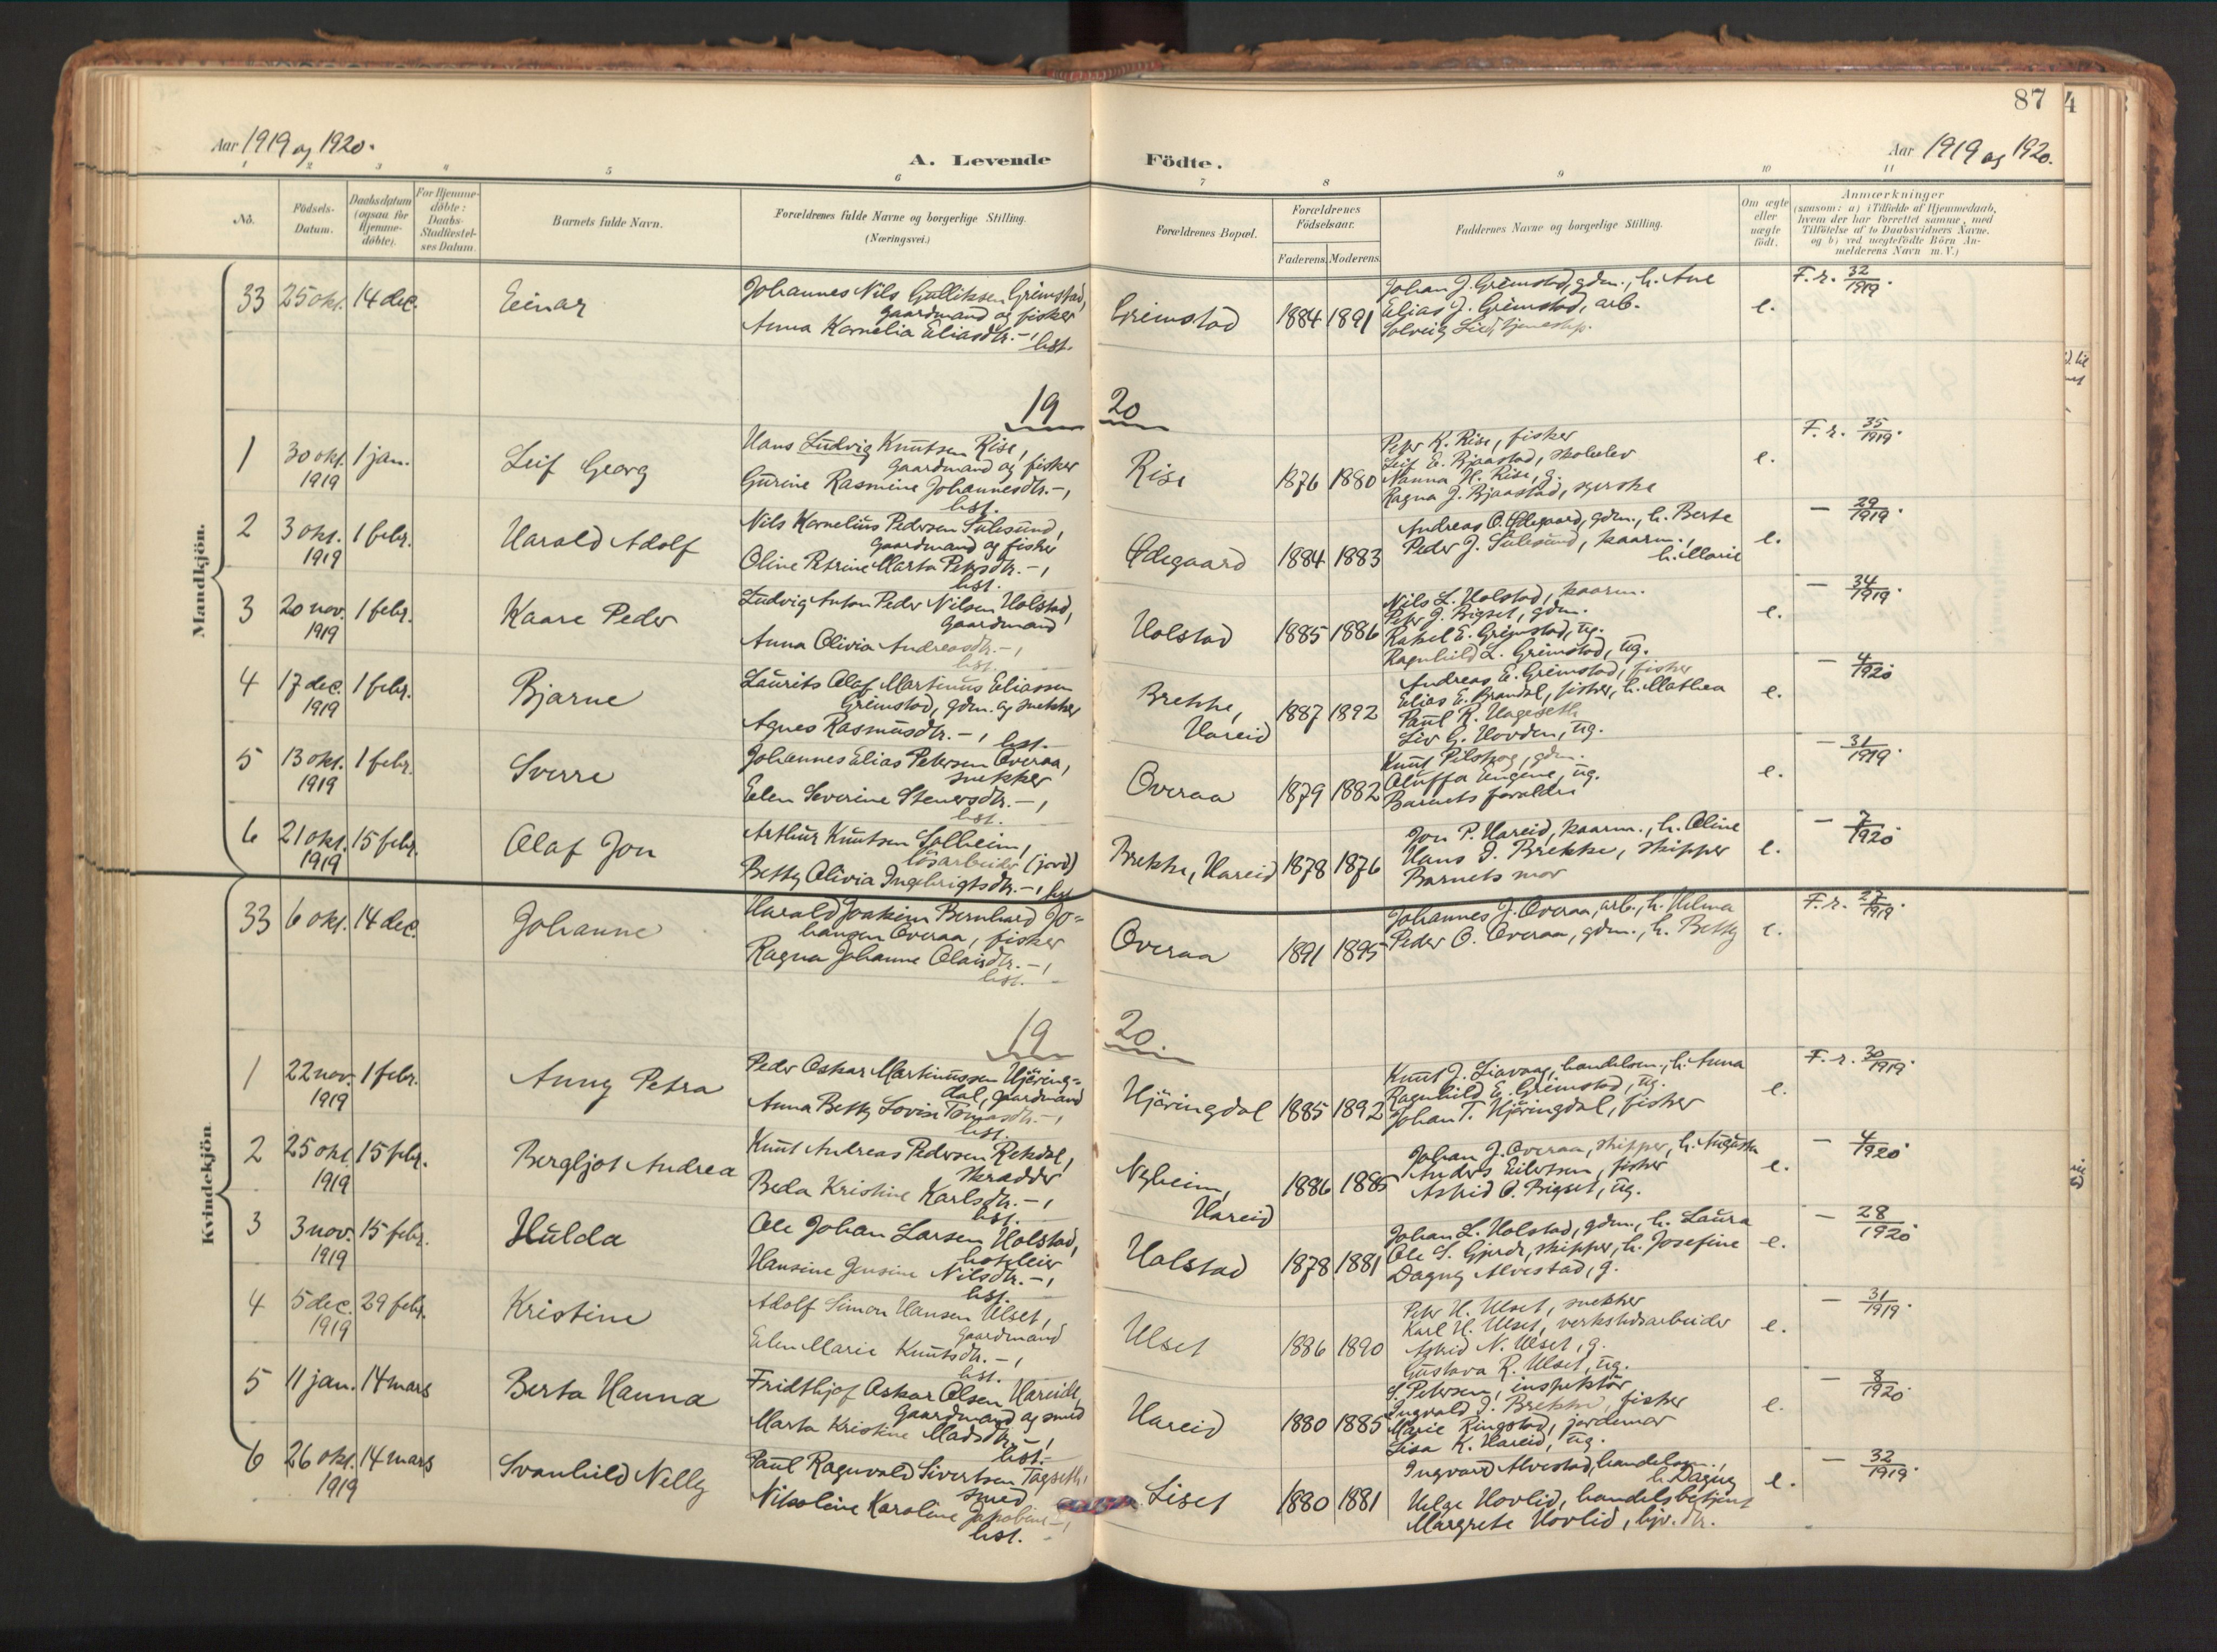 87
4
Aar 1919 og 1920.
A. Levende Födte.
Aar 1919 og 1920.
1 2 3 4 5 6 7 8 9 10 11
No.
Födsels-Datum.
Daabsdatum (ogsaa for Hjemme-döbte).
For Hjemme-döbte: Daabs-Stadfæstel-ses Datum.
Barnets fulde Navn.
Forældrenes fulde Navne og borgerlige Stilling.
(Næringsvei.)
Forældrenes Bopæl.
Forældrenes Födselsaar.
Faderens. Moderens.
Faddernes Navne og borgerlige Stilling.
Om ægte eller uægte födt.
Anmærkninger
(saasom: a) i Tilfælde af Hjemmedaab,
hvem der har forrettet samme, med
Tilföielse af to Daabsvidners Navne,
og b) ved uægtefödte Börn An-
melderens Navn m.V.)
Mandkjön.
33 25 okt. 14 dec. Einar
Johannes Nils Gulliksen Grimstad,
gaardmand og fisker
Anna Kornelia Eliasdtr. - , hst.
Grimstad 1884 1891
Johan J. Grimstad, gdm., h. Ane
Elias J. Grimstad, arb.
Solveig Lied, tjenestep.
e. F. r. 32/1919.
19 20
1 30 okt. 1919 1 jan. Leif Georg
Hans Ludvig Knutsen Rise,
gaardmand og fisker
Gurine Rasmine Johannesdtr. - ,
hst.
Rise 1876 1880
Peter K. Rise, fisker
Leif E. Bjaastad, skoleelev
Nanna H. Rise, g.
Ragna J. Bjaastad, syerske
e. F. r. 35/1919.
2 3 okt. 1919 1 febr. Harald Adolf
Nils Kornelius Pedersen Sulesund,
gaardmand og fisker
Oline Petrine Marta Petersdtr. - ,
hst.
Ødegaard 1884 1883
Andreas O. Ødegaard, gdm., h. Berte
Peder J. Sulesund, kaarm.,
h. Marie
e. - 29/1919.
3 20 nov. 1919 1 febr. Kaare Peder
Ludvig Anton Peder Nilsen Holstad,
gaardmand
Anna Olivia Andreasdtr. - ,
hst.
Holstad 1885 1886
Nils L. Holstad, kaarm.
Peter J. Bigset, gdm.
Rakel E. Grimstad, ug.
Ragnhild L. Grimstad, ug.
e. - 34/1919.
4 17 dec. 1919 1 febr. Bjarne
Laurits Olaf Martinus Eliassen
Grimstad, gdm. og snekker
Agnes Rasmusdtr. - , hst.
Brekke, Hareid 1887 1892
Andreas E. Grimstad, fisker
Elias E. Brandal, fisker, h. Mathea
Paul R. Hageseth
Liv G. Hovden, ug.
e. - 4/1920
5 13 okt. 1919 1 febr. Sverre
Johannes Elias Petersen Overaa,
snekker
Elen Severine Steversdtr. - ,
hst.
Overaa 1879 1882
Knut Pilskog, gdm.
Oluffa Eugene, ug.
Barnets foraldre
e. - 31/1919.
6 21 okt. 1919 15 febr. Olaf Jon
Arthur Knutsen Solheim,
lösarbeider (jord)
Betty Olivia Ingebrigtsdtr. - , hst
Brekke, Hareid 1878 1876
Jon P. Hareid, kaarm., h. Oline
Hans I. Brekke, skipper
Barnets mor
e. - 7/1920
Kvindekjön.
33 6 okt. 14 dec. Johanne
Harald Joakim Bernhard Jo=
hansen Overaa, fisker
Ragna Johanne Olaisdtr. - ,
hst.
Overaa 1891 1895
Johannes J. Overaa, arb., h. Helma
Peder O. Overaa, gdm., h. Betty
e. F. r. 27/1919.
19 20
1 22 nov. 1919 1 febr. Anny Petra
Peder Oskar Martinussen Hjöring=
dal, gaardmand
Anna Betty Lovise Tomasdtr. - ,
hst.
Hjöringdal 1885 1892
Knut J. Liavaag, handelsm., h. Anna
Ragnhild E. Grimstad, ug.
Johan T. Hjöringdal, fisker
e. F. r. 30/1919.
2 25 okt. 1919 15 febr. Bergljot Andrea
Knut Andreas Pedersen Rekdal,
skrædder
Beda Kristine Karlsdtr. - ,
hst.
Nyheim, Hareid 1886 1885
Johan J. Overaa, skipper, h. Augusta
Anders Eilertsen, fisker
Astrid O. Bigset, ug.
e. - 4/1920.
3 3 nov. 1919 15 febr. Hulda
Ole Johan Larsen Holstad,
hoteleier
Hansine Gensine Nilsdtr. - ,
hst.
Holstad 1878 1881
Johan L. Holstad, gdm., h. Laura
Ole S. Gjerde, skipper, h. Josefine
Dagny Alvestad, g.
e. - 28/1920
4 5 dec. 1919 29 febr. Kristine
Adolf Simon Hansen Ulset,
gaardmand
Elen Marie Knutsdtr. - ,
hst.
Ulset 1886 1890
Peter H. Ulset, snekker
Karl H. Ulset, verkstedsarbeider
Astrid N. Ulset, g.
Gustava R. Ulset, ug.
e. - 31/1919.
5 11 jan. 14 mars Berta Hanna
Fridthjof Oskar Olsen Hareide,
gaardmand og smed
Marta Kristine Madsdtr. - ,
hst.
Hareid 1880 1885
S. Petersen, inspektör
Ingvald I. Brekke, fisker
Marie Ringstad, jordemor
Lisa K. Hareid, ug.
e. - 8/1920
6 26 okt. 1919 14 mars Svanhild Nelly
Paul Ragnvald Sivertsen Tagseth,
smed
Nikoline Karoline Jakobine - ,
hst.
Liset 1880 1881
Ingvard Alvestad, handelsm.,
h. Dagny
Helge Hovlid, handelsbetjent
Margrete Hovlid, hjv. dtr.
e. - 32/1919.